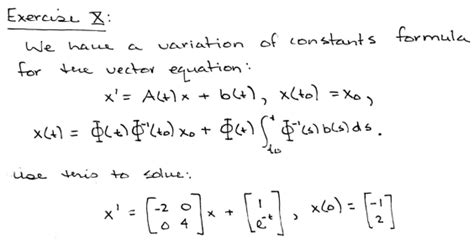 Exercise X:
We have a variation of constants formula
for the vector equation:
x' = A(t)x + b(t), x(t₀) = x₀,
x(t) = Φ(t)Φ⁻¹(t₀)x₀ + Φ(t)∫_{t₀}^{t} Φ⁻¹(s)b(s)ds.
use this to solve:
x' = [-2 0; 0 4] x + [1; e^{-t}], x(0) = [-1; 2]